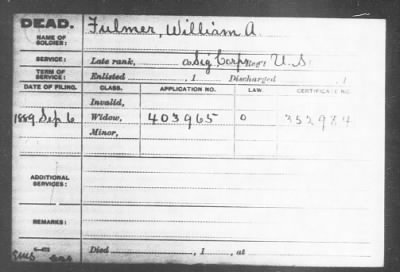 DEAD.
NAME OF SOLDIER: Fulmer, William A.
SERVICE: Late rank, Co. Sig Corps Reg't U.S.
TERM OF SERVICE: Enlisted , 1 Discharged , 1
DATE OF FILING. CLASS. APPLICATION NO. LAW. CERTIFICATE NO.
Invalid,
1889, Sep. 6 Widow, 403965 O 352984
Minor,
ADDITIONAL SERVICES:
REMARKS:
Died , 1 , at